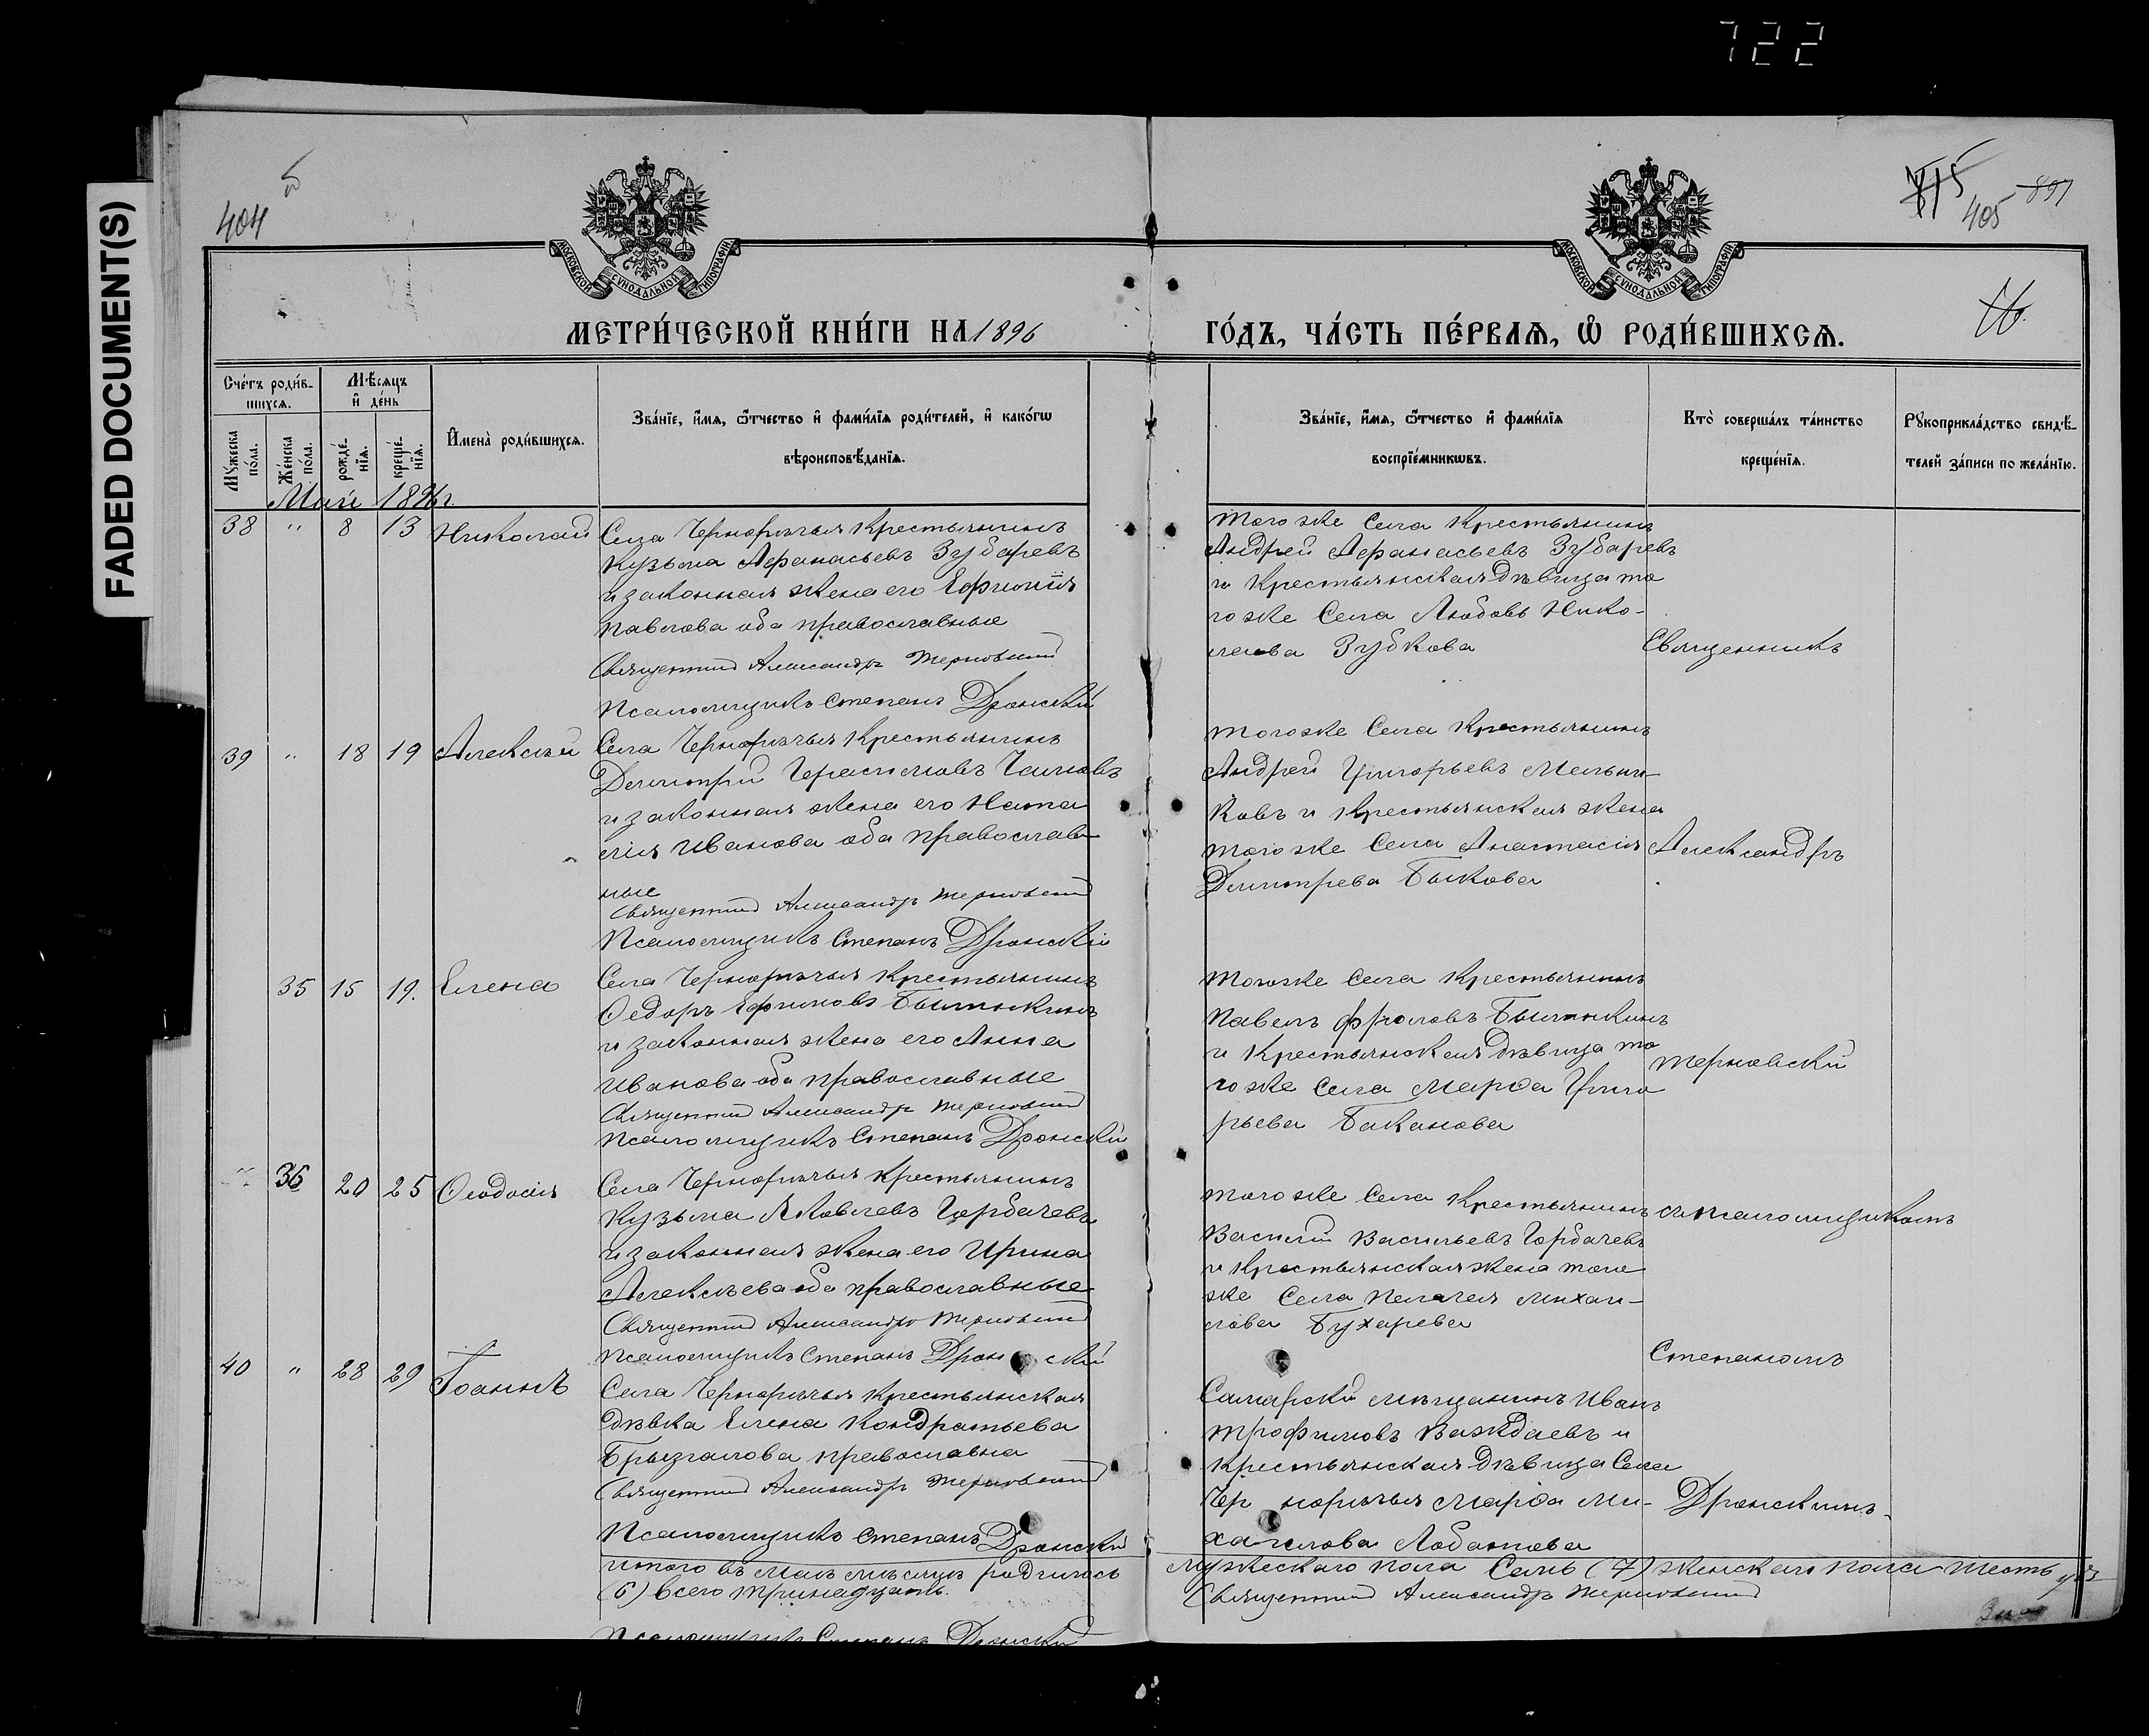 722
FADED DOCUMENT(S)
404
405
897
МОСКОВСКОЙ СѴНОДАЛЬНОЙ ТИПОГРАФІИ
МОСКОВСКОЙ СѴНОДАЛЬНОЙ ТИПОГРАФІИ
МЕТРИ́ЧЕСКОЙ КНИ́ГИ НА 1896
ГО́ДЪ, ЧА́СТЬ ПЕ́РВАѦ, Ѡ҆ РОДИ́ВШИХСѦ.
Сче́тъ роди́в-
шихсѧ.
Мѣ́сяцъ
и҆ де́нь
Мꙋ́жеска по́ла.
Же́нска по́ла.
рожде́-нїѧ.
креще́-нїѧ.
И҆мена̀ роди́вшихсѧ.
Зва́нїе, и҆́мѧ, ѻ҆́тчество и҆ фами́лїѧ роди́телей, и҆ како́гѡ
вѣроисповѣ́данїѧ.
Зва́нїе, и҆́мѧ, ѻ҆́тчество и҆ фами́лїѧ
воспрїе́мникѡвъ.
Кто̀ соверша́лъ та́инство
креще́нїѧ.
Рꙋкоприкла́дство свидѣ́-
телей за́писи по жела́нїю.
Май 1896 г.
38 " 8 13 Николай
Села Чернорѣчья Крестьянинъ
Кузьма Афанасьевъ Зубаревъ
и законная жена его Ефимія
Павлова оба православные
Священникъ Александръ Терновскій
Псаломщикъ Степанъ Дронскій
Того же Села Крестьянинъ
Андрей Афанасьевъ Зубаревъ
и Крестьянская дѣвица то
го же Села Любовь Нико-
лаева Зубкова
Священникъ
39 " 18 19 Алексѣй
Села Чернорѣчья Крестьянинъ
Димитрій Герасимовъ
и законная жена его Ната
лія Иванова оба православ
ные
Священникъ Александръ Терновскій
Псаломщикъ Степанъ Дронскій
Того же Села Крестьянинъ
Андрей Григорьевъ Мельни-
ковъ и Крестьянская жена
того же Села Анастасія
Димитрева Быкова
Александръ
35 15 19. Елена
Села Чернорѣчья Крестьянинъ
Ѳедоръ Ефимовъ
и законная жена его Анна
Иванова оба православные
Священникъ Александръ Терновскій
Псаломщикъ Степанъ Дронскій
Того же Села Крестьянинъ
Павелъ Фроловъ
и Крестьянская дѣвица то
го же Села Марѳа Григо
рьева Баканова
Терновскій
" 36 20 25 Ѳеодосія
Села Чернорѣчья Крестьянинъ
Кузьма Яковлевъ Горбачевъ
и законная жена его Ирина
Алексѣева оба православные
Священникъ Александръ Терновскій
Псаломщикъ Степанъ Дронскій
Того же Села Крестьянинъ
Василій Васильевъ Горбачевъ
и Крестьянская жена того
же Села Пелагея Михаи-
лова Бухарева
съ псаломщикомъ
40 " 28 29 Іоаннъ
Села Чернорѣчья Крестьянская
дѣвка Елена Кондратьева
Брызгалова православна
Священникъ Александръ Терновскій
Псаломщикъ Степанъ Дронскій
Степаномъ
Самарскій мѣщанинъ Иванъ
Трофимовъ Важдаевъ и
крестьянская дѣвица Села
Чернорѣчья Марѳа Ми-
хаилова Лобанова
Дронскимъ.
Итого въ Маѣ мѣсяцѣ родилось мужескаго пола Семь (7) женскаго пола шесть
(6) всего тринадцать.
Священникъ Александръ Терновскій
Псаломщикъ Степанъ Дронскій